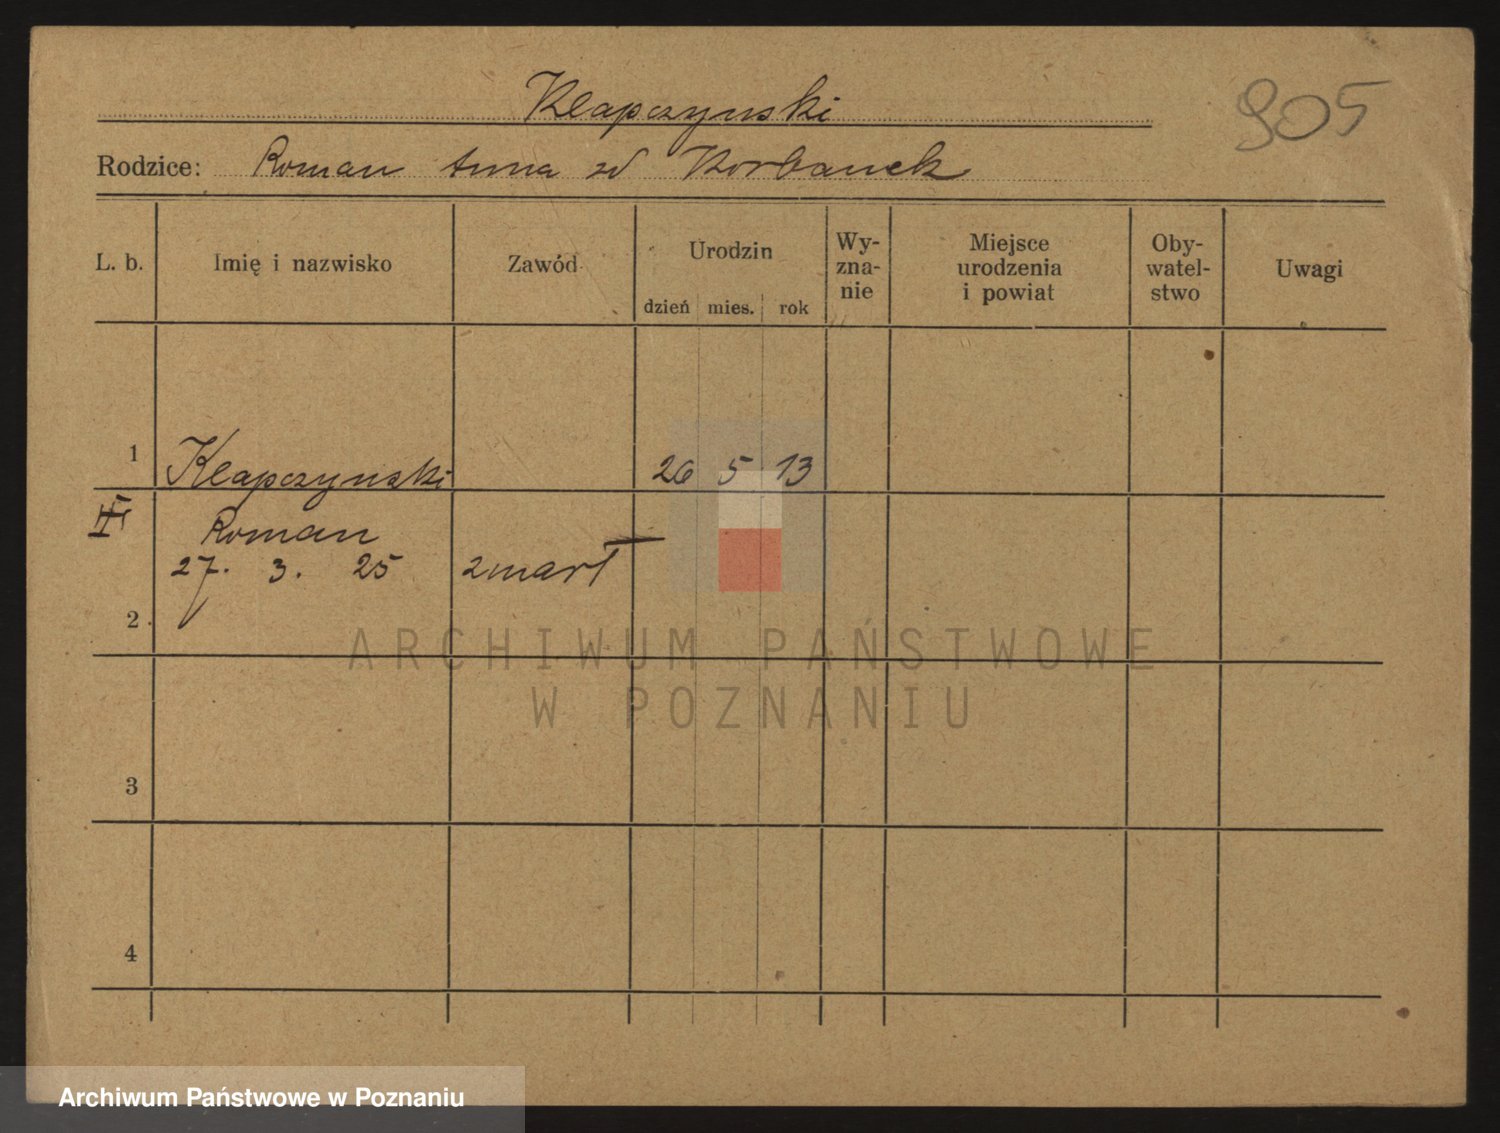 Klapczynski
905
Rodzice: Roman Anna zd Korbanek
L. b. Imię i nazwisko Zawód Urodzin dzień mies. rok Wy-zna-nie Miejsce urodzenia i powiat Oby-watel-stwo Uwagi
1 Klapczynski 26 5 13
III Roman
27. 3. 25 zmarł
2
ARCHIWUM PAŃSTWOWE
W POZNANIU
3
4
Archiwum Państwowe w Poznaniu